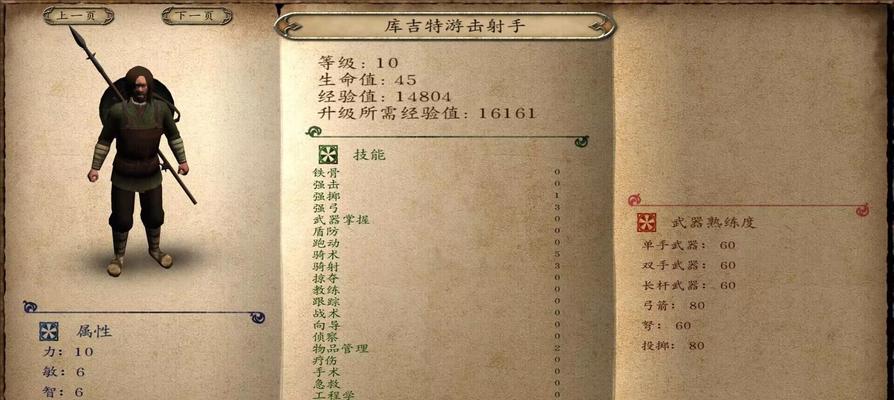 上一页
下一页
库吉特游击射手
等级: 10
生命值: 45
经验值: 14804
升级所需经验值: 16161
技能
铁骨 0
强击 0
强掷 1
强弓 3
武器掌握 0
盾防 0
跑动 0
骑术 5
骑射 3
掠夺 0
教练 0
跟踪 0
战术 0
向导 0
侦察 0
物品管理 2
疗伤 0
手术 0
急救 0
工程学 0
属性
力: 10
敏: 6
智: 6
武器熟练度
单手武器: 60
双手武器: 60
长杆武器: 60
弓箭: 80
弩: 60
投掷: 80